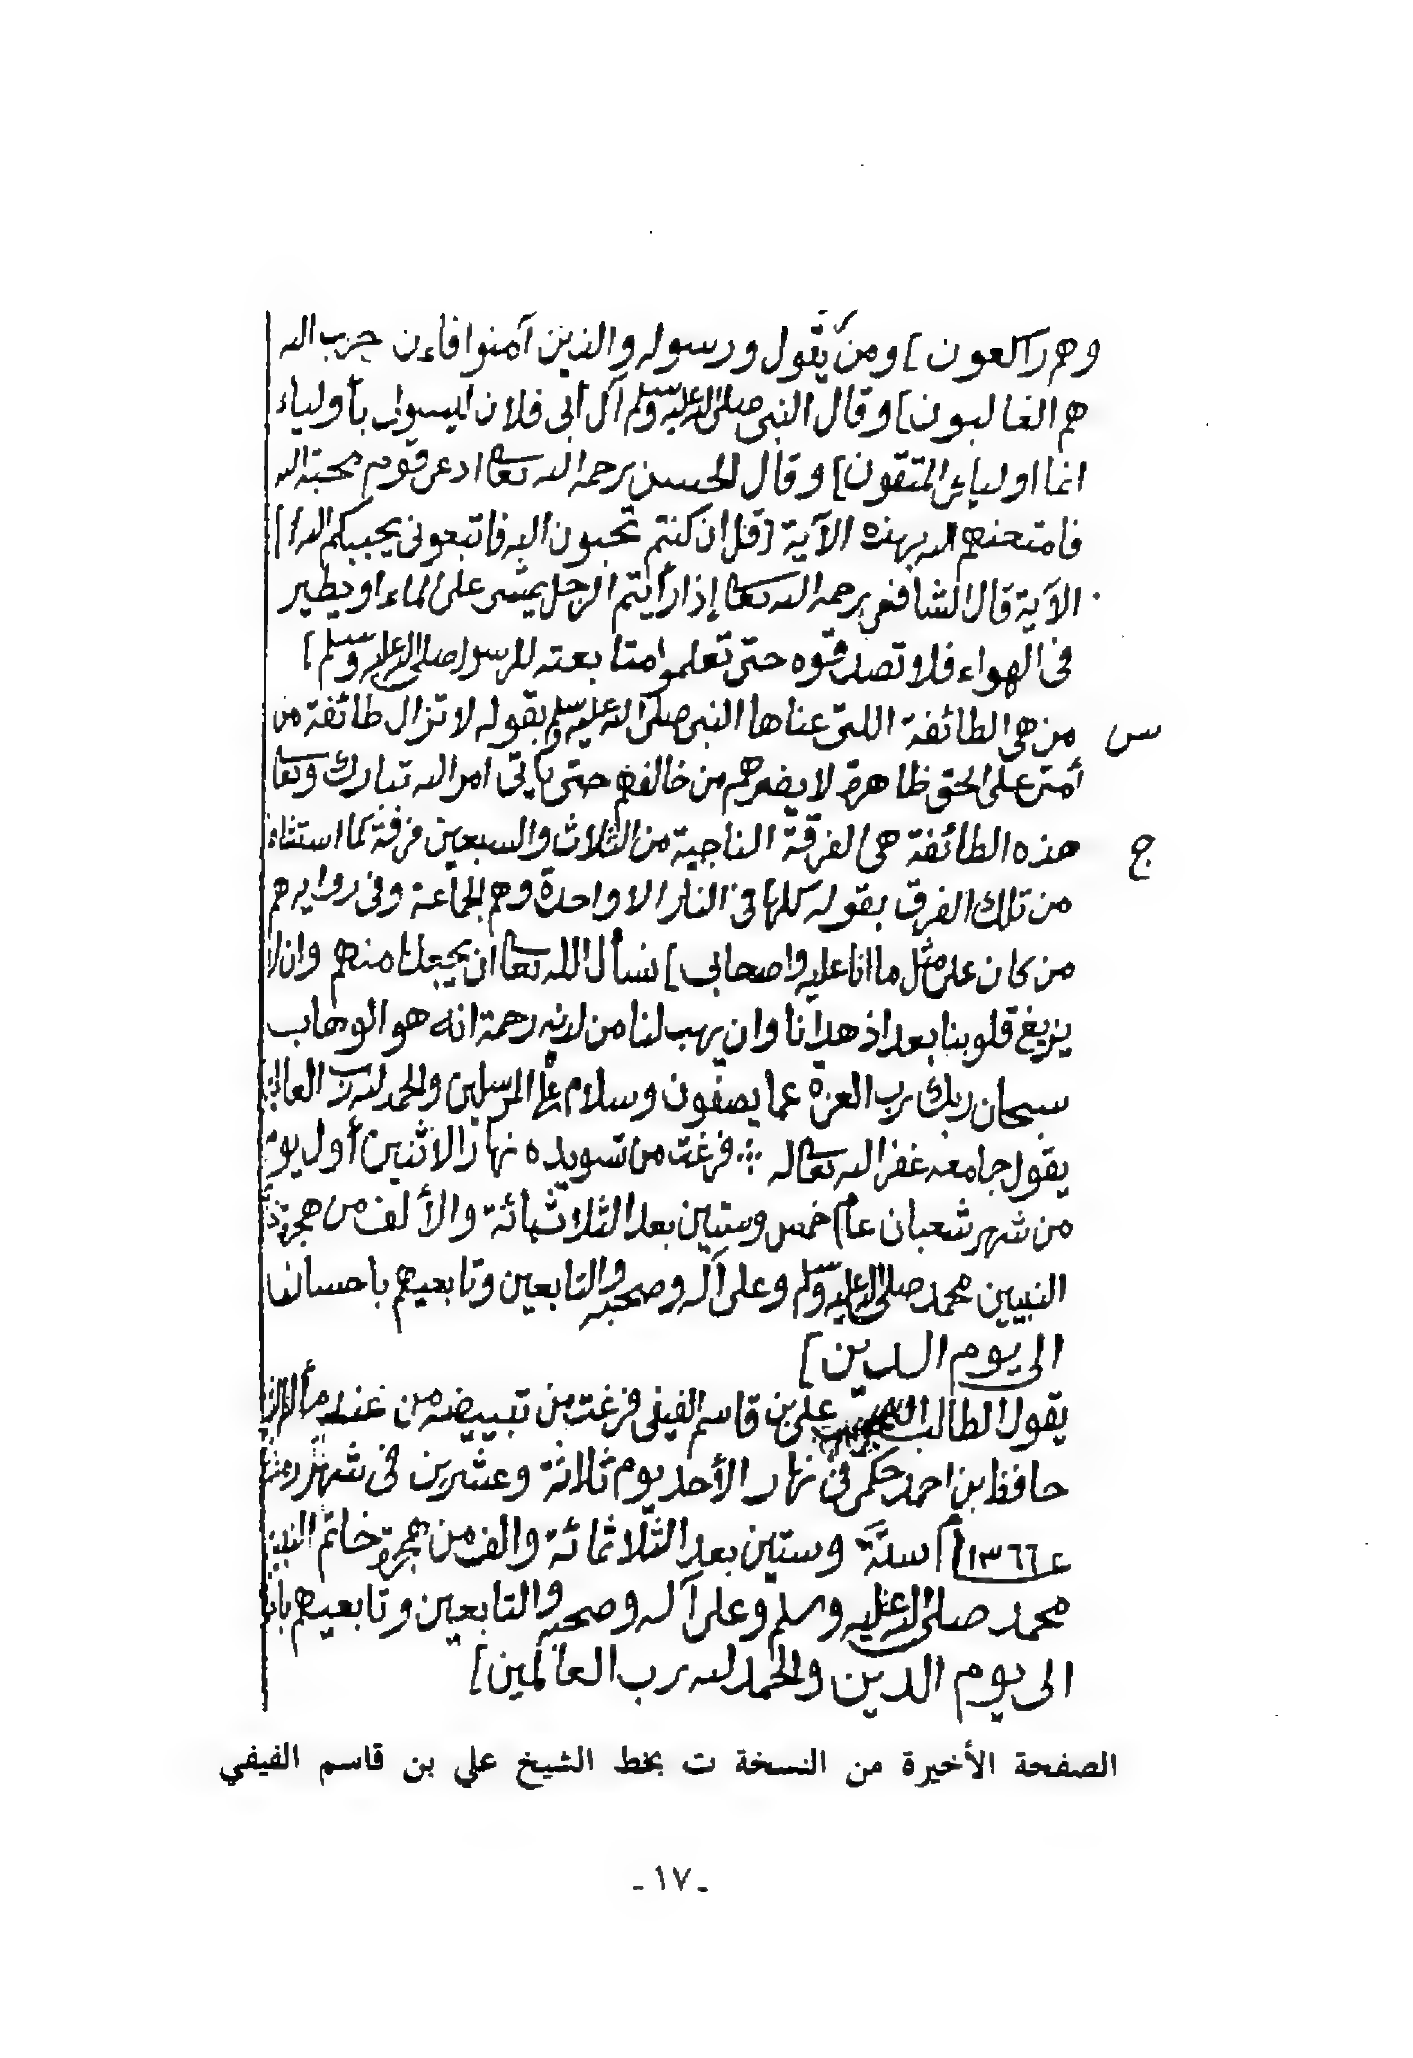 وهم راكعون] ومن يتول ورسوله والذين آمنوا فاءن حزب الله
هم الغالبون] وقال النبي صلى الله عليه وسلم آل أبى فلان ليسولى بأولياء
انما اوليائى المتقون] وقال الحسن رحمه الله تعا ادعى قوم محبة الله
فامتحنهم الله بهذه الآية [قل ان كنتم تحبون الله فاتبعونى يحببكم الله]
الآية قال الشافعى رحمه الله تعا إذا رأيتم الرجل يمشى على الماء او يطير
فى الهواء فلا تصدقوه حتى تعلموا متابعته للرسول صلى الله عليه وسلم]
س من هى الطائفة اللتى عناها النبى صلى الله عليه وسلم بقوله لا تزال طائفة من
أمتى على الحق ظاهرة لا يضرهم من خالفهم حتى يأتى امر الله تبارك وتعا
ج هذه الطائفة هى الفرقة الناجية من الثلاث والسبعين فرقة كما استثناء
من تلك الفرق بقوله كلها فى النار الا واحدة وهم الجماعة وفى روايه هم
من كان على مثل ما انا عليه واصحابى] نسأل الله تعا ان يجعلنا منهم وان لا
يزيغ قلوبنا بعد اذ هدانا وان يهب لنا من لدنه رحمة انه هو الوهاب
سبحان ربك رب العزة عما يصفون وسلام على المرسلين والحمد لله رب العالمين
يقول جامعه غفر الله تعا له فرغت من تسويده نهار الاثنين أول يوم
من شهر شعبان عام خمس وستين بعد الثلاثمائة والألف من هجرة
النبيين محمد صلى الله عليه وسلم وعلى آله وصحبه والتابعين وتابعيهم باحسان
الى يوم الدين]
يقول الطالب على بن قاسم الفيفى فرغت من تبييضه من عند
حافظ بن احمد حكمى فى نهار الأحد يوم ثلاثة وعشرين فى شهر
عـ١٣٦٦ سنة وستين بعد الثلاثمائة والف من هجرة خاتم النبيين
محمد صلى الله عليه وسلم وعلى آله وصحبه والتابعين وتابعيهم
الى يوم الدين والحمد لله رب العالمين]
الصفحة الأخيرة من النسخة ت بخط الشيخ علي بن قاسم الفيفي
ـ ١٧ ـ